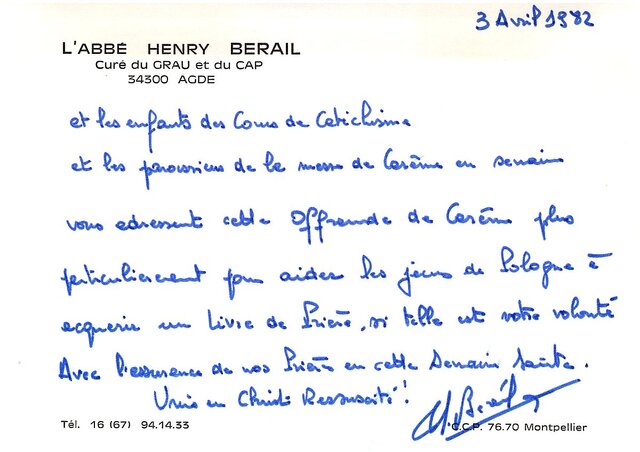 3 Avril 1982
L'ABBÉ HENRY BERAIL
Curé du GRAU et du CAP
34300 AGDE
et les enfants des Cours de Catéchisme
et les paroissiens de la messe de Carême en semaine
vous adressent cette Offrande de Carême plus
particulièrement pour aider les jeunes de Pologne à
acquérir un Livre de Prière, si telle est votre volonté
Avec l'assurance de nos Prières en cette Semaine Sainte.
Unis en Christ Ressuscité!
H. Berail
Tél. 16 (67) 94.14.33
C.C.P. 76.70 Montpellier